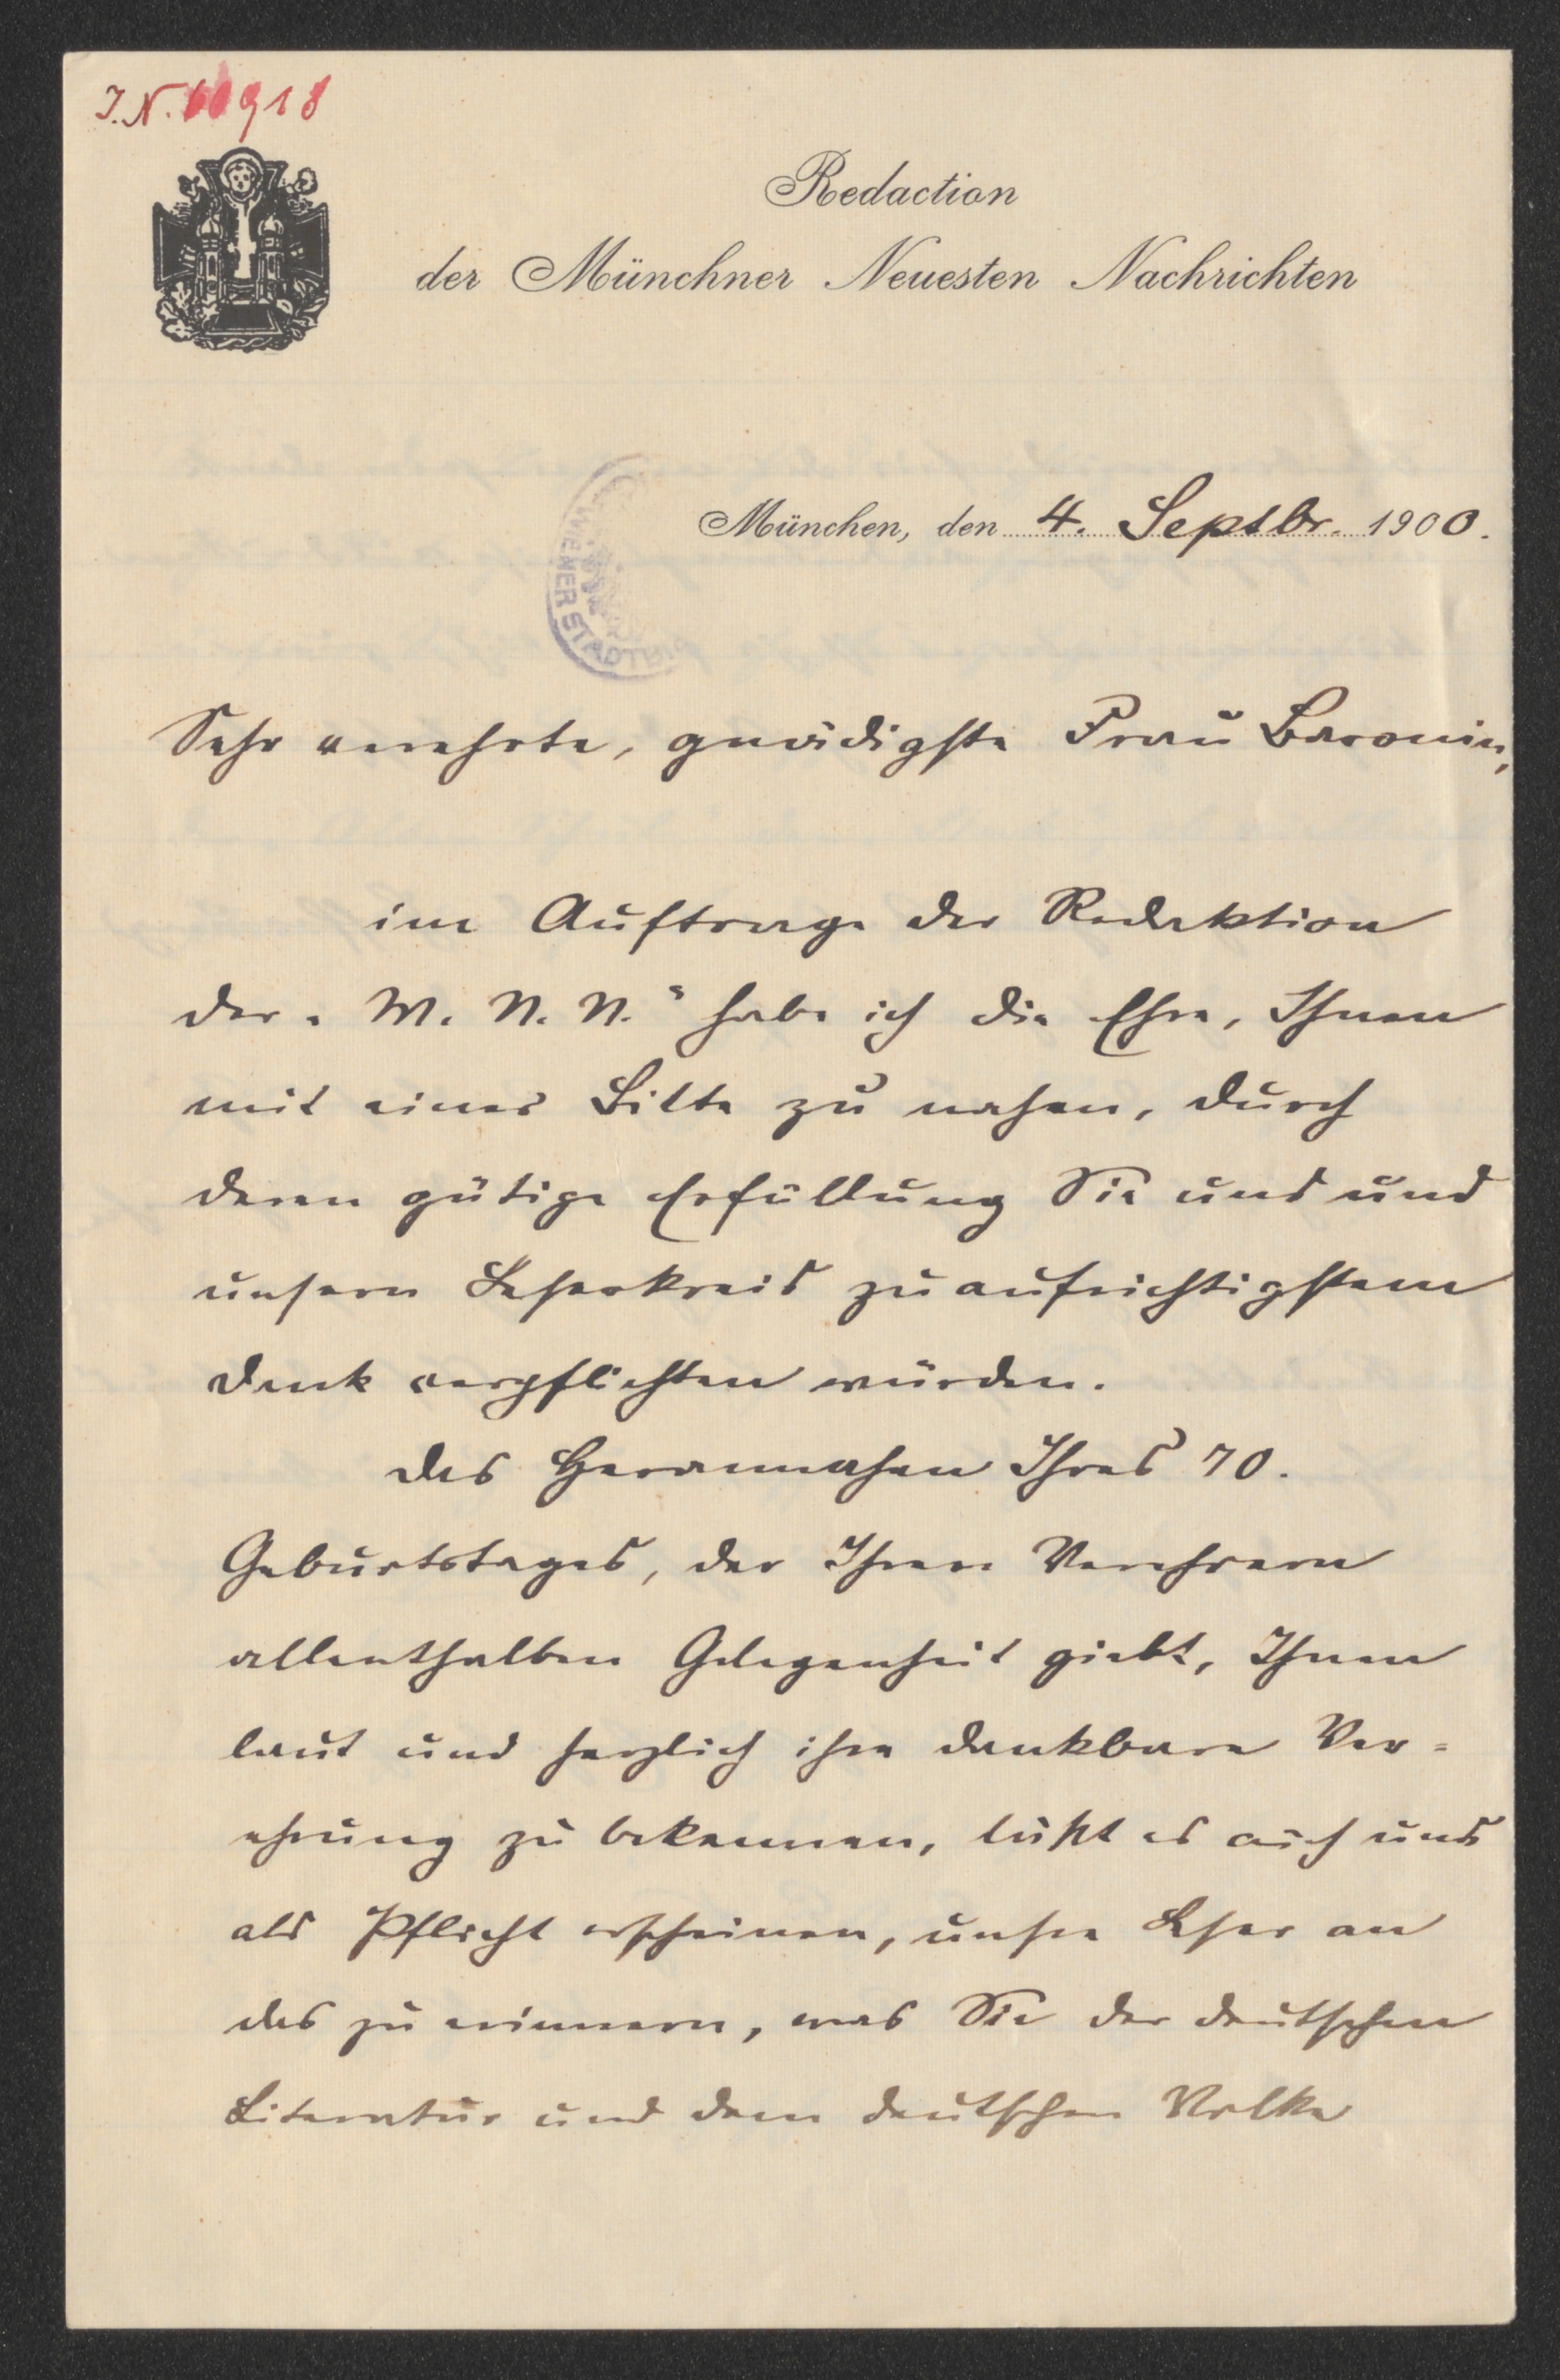 J.N. 60918
Redaction
der Münchner Neuesten Nachrichten
München, den 4. Septbr. 1900.
WIENER STADTBI
Sehr verehrte, gnädigste Frau Baronin,
im Auftrage der Redaktion
der „M. N. N.“ habe ich die Ehre, Ihnen
mit einer Bitte zu nahen, durch
deren gütige Erfüllung Sie uns und
unsern Leserkreis zu aufrichtigstem
Dank verpflichten würden.
Das Herannahen Ihres 70.
Geburtstages, der Ihren Verehrern
allenthalben Gelegenheit giebt, Ihnen
laut und herzlich ihre dankbare Ver-
ehrung zu bekennen, läßt es auch uns
als Pflicht erscheinen, unsre Leser an
das zu erinnern, was Sie der deutschen
Literatur und dem deutschen Volke